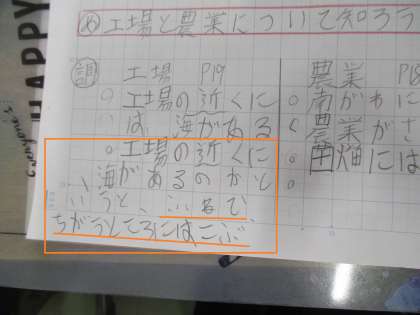 め 工場と農業について知ろう
調 工場 P19
○工場の近くに
は海がある
○工場の近くに
海があるのかと
いうと、ふねで、
ちがうところにはこぶ
農業 P18
○南がわに
農業がさ
○田畑には
HAPPY